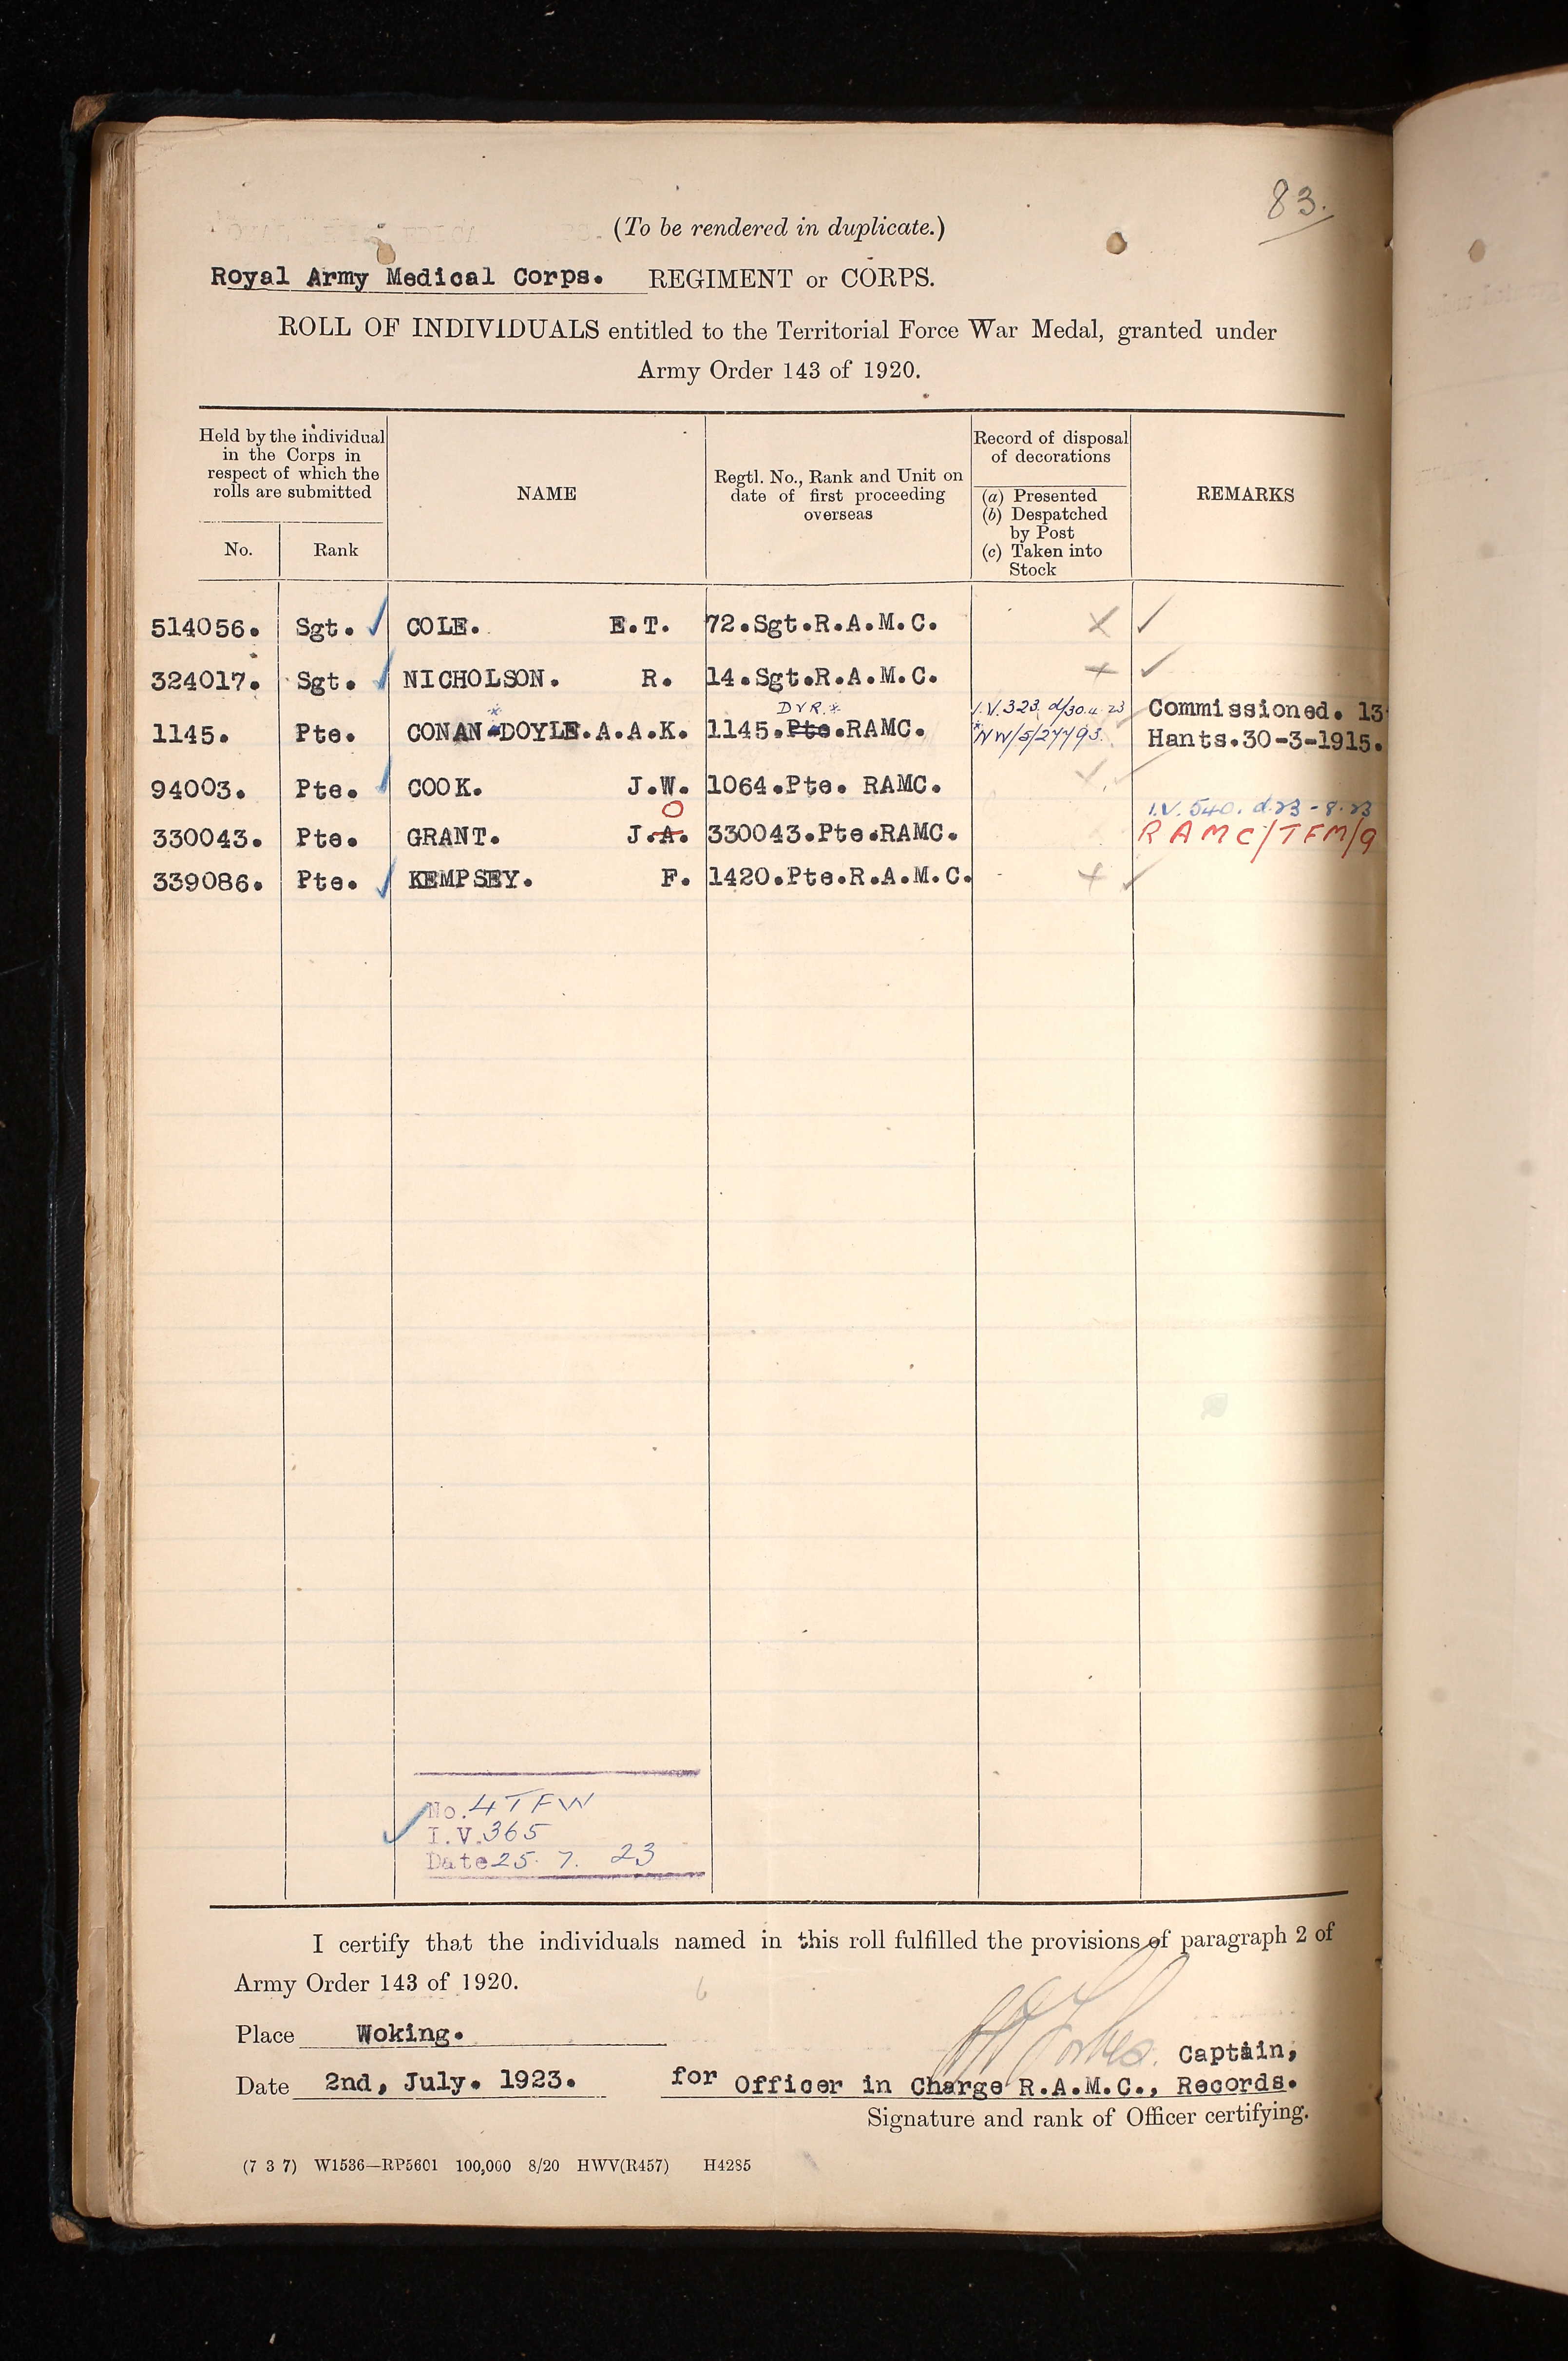 83.
(To be rendered in duplicate.)
Royal Army Medical Corps. REGIMENT or CORPS.
ROLL OF INDIVIDUALS entitled to the Territorial Force War Medal, granted under
Army Order 143 of 1920.
Held by the individual
in the Corps in
respect of which the
rolls are submitted
No.
Rank
NAME
Regtl. No., Rank and Unit on
date of first proceeding
overseas
Record of disposal
of decorations
(a) Presented
(b) Despatched
by Post
(c) Taken into
Stock
REMARKS
514056. Sgt. COLE. E.T. 72.Sgt.R.A.M.C.
324017. Sgt. NICHOLSON. R. 14.Sgt.R.A.M.C.
DVR.* I.V.323. d/30.4.23 Commissioned. 13
1145. Pte. CONAN-DOYLE.A.A.K. 1145.Pte.RAMC. *NW/5/27793. Hants.30-3-1915.
94003. Pte. COOK. J.W. 1064.Pte. RAMC.
O I.V. 540. d.23-8.23
330043. Pte. GRANT. J.A. 330043.Pte.RAMC. RAMC/TFM/9
339086. Pte. KEMPSEY. F. 1420.Pte.R.A.M.C.
No. 4 TFW
I.V. 365
Date 25. 7. 23
I certify that the individuals named in this roll fulfilled the provisions of paragraph 2 of
Army Order 143 of 1920.
Place Woking.
Forbes. Captain,
Date 2nd, July. 1923. for Officer in Charge R.A.M.C., Records.
Signature and rank of Officer certifying.
(7 3 7) W1536—RP5601 100,000 8/20 HWV(R457) H4285